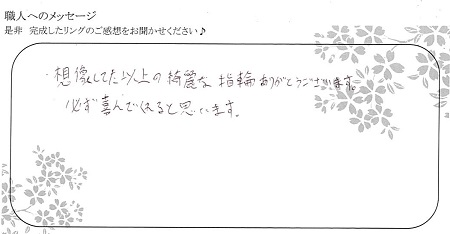 職人へのメッセージ
是非 完成したリングのご感想をお聞かせください♪
想像してた以上の綺麗な指輪ありがとうございます。
必ず喜んでくれると思います。